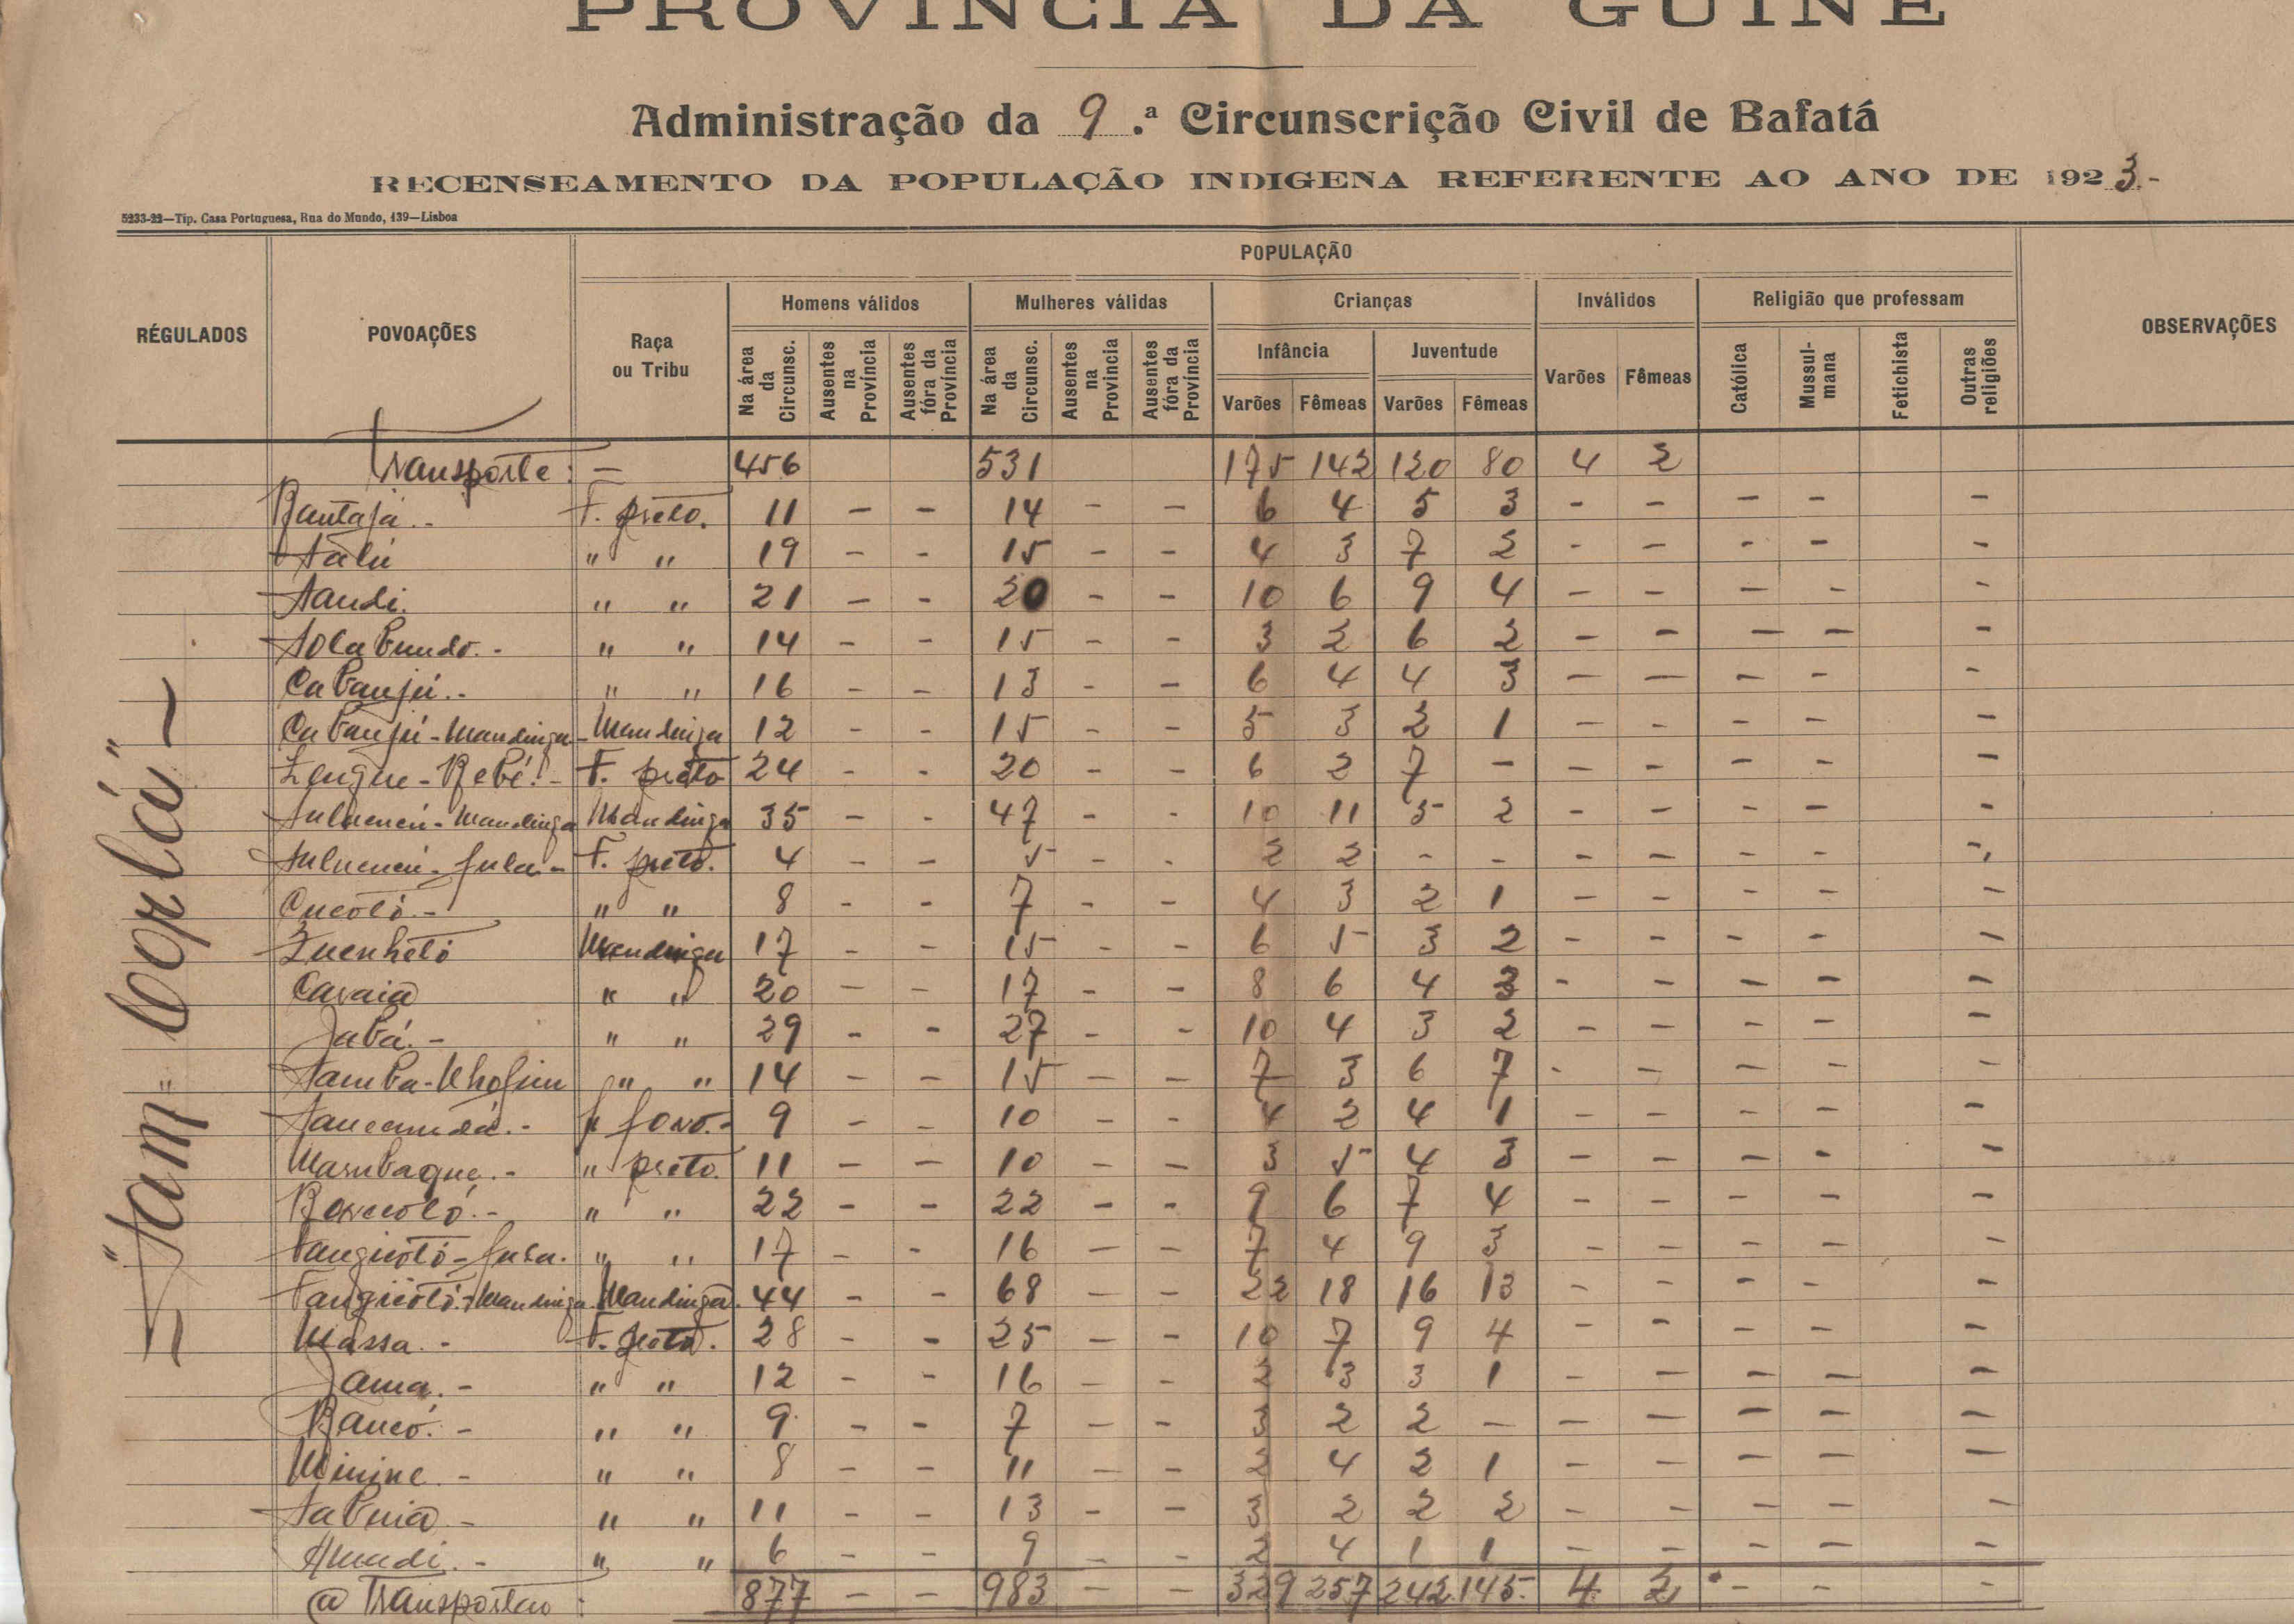 PROVINCIA DA GUINÉ
Administração da 9.ª Circunscrição Civil de Bafatá
RECENSEAMENTO DA POPULAÇÃO INDIGENA REFERENTE AO ANO DE 1923.-
5233-22—Tip. Casa Portuguesa, Rua do Mundo, 139—Lisboa
RÉGULADOS POVOAÇÕES Raça ou Tribu POPULAÇÃO OBSERVAÇÕES
Homens válidos Mulheres válidas Crianças Inválidos Religião que professam
Na área da Circunsc. Ausentes na Província Ausentes fóra da Província Na área da Circunsc. Ausentes na Província Ausentes fóra da Província Infância Juventude Varões Fêmeas Católica Mussulmana Fetichista Outras religiões
Varões Fêmeas Varões Fêmeas
Transporte: — 456 531 175 142 120 80 4 2
Bantajá.- F. preto. 11 - - 14 - - 6 4 5 3 - - - - -
" " 19 - - 15 - - 4 3 7 2 - - - - -
" " 21 - - 20 - - 10 6 9 4 - - - - -
" " 14 - - 15 - - 3 2 6 2 - - - - -
Cabanjú.- " " 16 - - 13 - - 6 4 4 3 - - - - -
Cabanjú-Mandinga- Mandinga 12 - - 15 - - 5 3 2 1 - - - - -
F. preto 24 - - 20 - - 6 2 7 - - - - - -
Mandinga Mandinga 35 - - 47 - - 10 11 5 2 - - - - -
fula- F. preto. 4 - - 5 - - 2 2 - - - - - - -
Cucotó.- " " 8 - - 7 - - 4 3 2 1 - - - - -
Mandinga 17 - - 15 - - 6 5 3 2 - - - - -
" " 20 - - 17 - - 8 6 4 3 - - - - -
Jabá.- " " 29 - - 27 - - 10 4 3 2 - - - - -
" " 14 - - 15 - - 7 3 6 7 - - - - -
9 - - 10 - - 4 2 4 1 - - - - -
" preto. 11 - - 10 - - 3 5 4 3 - - - - -
" " 22 - - 22 - - 9 6 7 4 - - - - -
fula. " " 17 - - 16 - - 7 4 9 3 - - - - -
Mandinga Mandinga. 44 - - 68 - - 22 18 16 13 - - - - -
Massa.- F. preto. 28 - - 25 - - 10 7 9 4 - - - - -
" " 12 - - 16 - - 2 3 3 1 - - - - -
" " 9 - - 7 - - 3 2 2 - - - - - -
" " 8 - - 11 - - 2 4 2 1 - - - - -
" " 11 - - 13 - - 3 2 2 2 - - - - -
" " 6 - - 9 - - 2 4 1 1 - - - - -
a Transportar: 877 - - 983 - - 329 257 242 145. 4 2 - - -